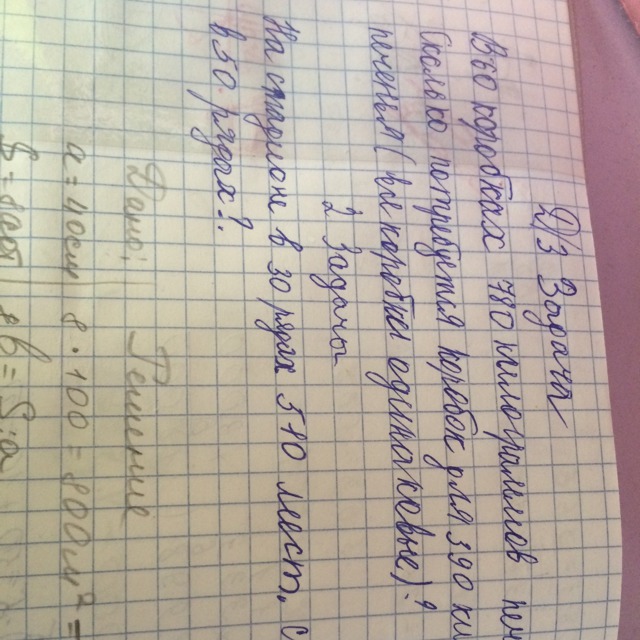 Д/З Задача
В 60 коробках 780 килограммов пе
Сколько потребуется коробок для 390 ки
печенья (все коробки одинаковые)?
2 Задача
На стадионе в 30 рядах 510 мест. С
в 50 рядах?
Дано: Решение
a = 40см 8 · 100 = 800м² =